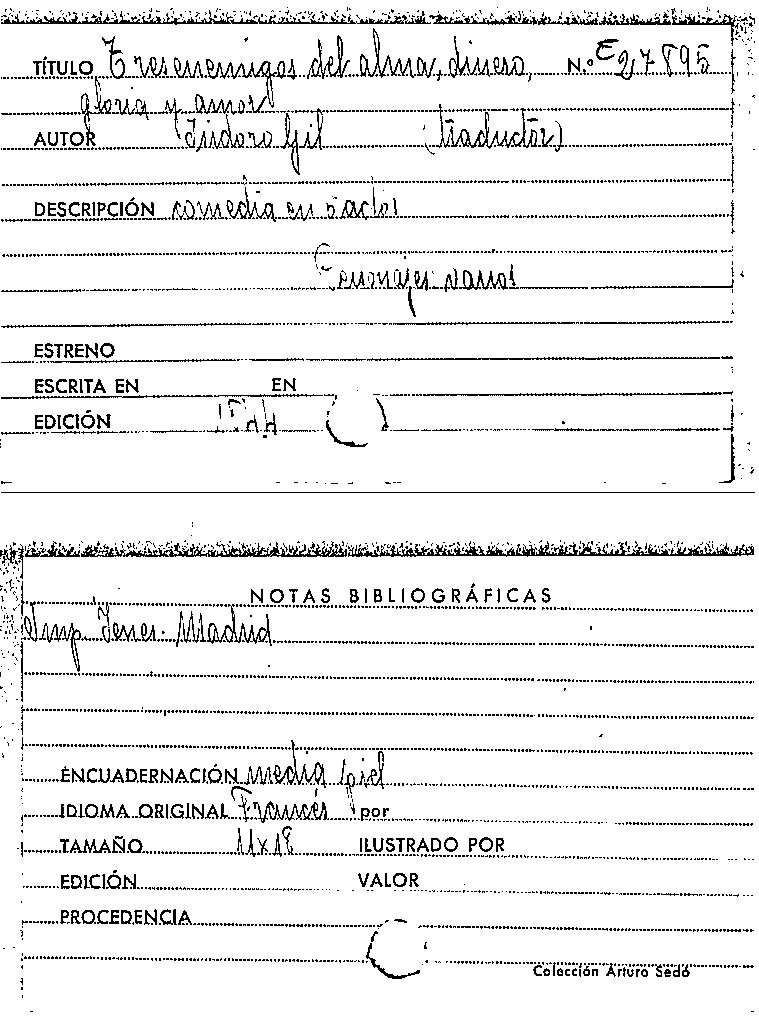 TÍTULO Tres enemigos del alma, dinero, N.º E 27895
gloria y amor
AUTOR Isidoro Gil (traductor)
DESCRIPCIÓN comedia en 5 actos
Personajes varios
ESTRENO
ESCRITA EN EN
EDICIÓN
NOTAS BIBLIOGRÁFICAS
Imp. Madrid
ENCUADERNACIÓN media piel
IDIOMA ORIGINAL Francés por
TAMAÑO 11x18 ILUSTRADO POR
EDICIÓN VALOR
PROCEDENCIA
Colección Arturo Sedó